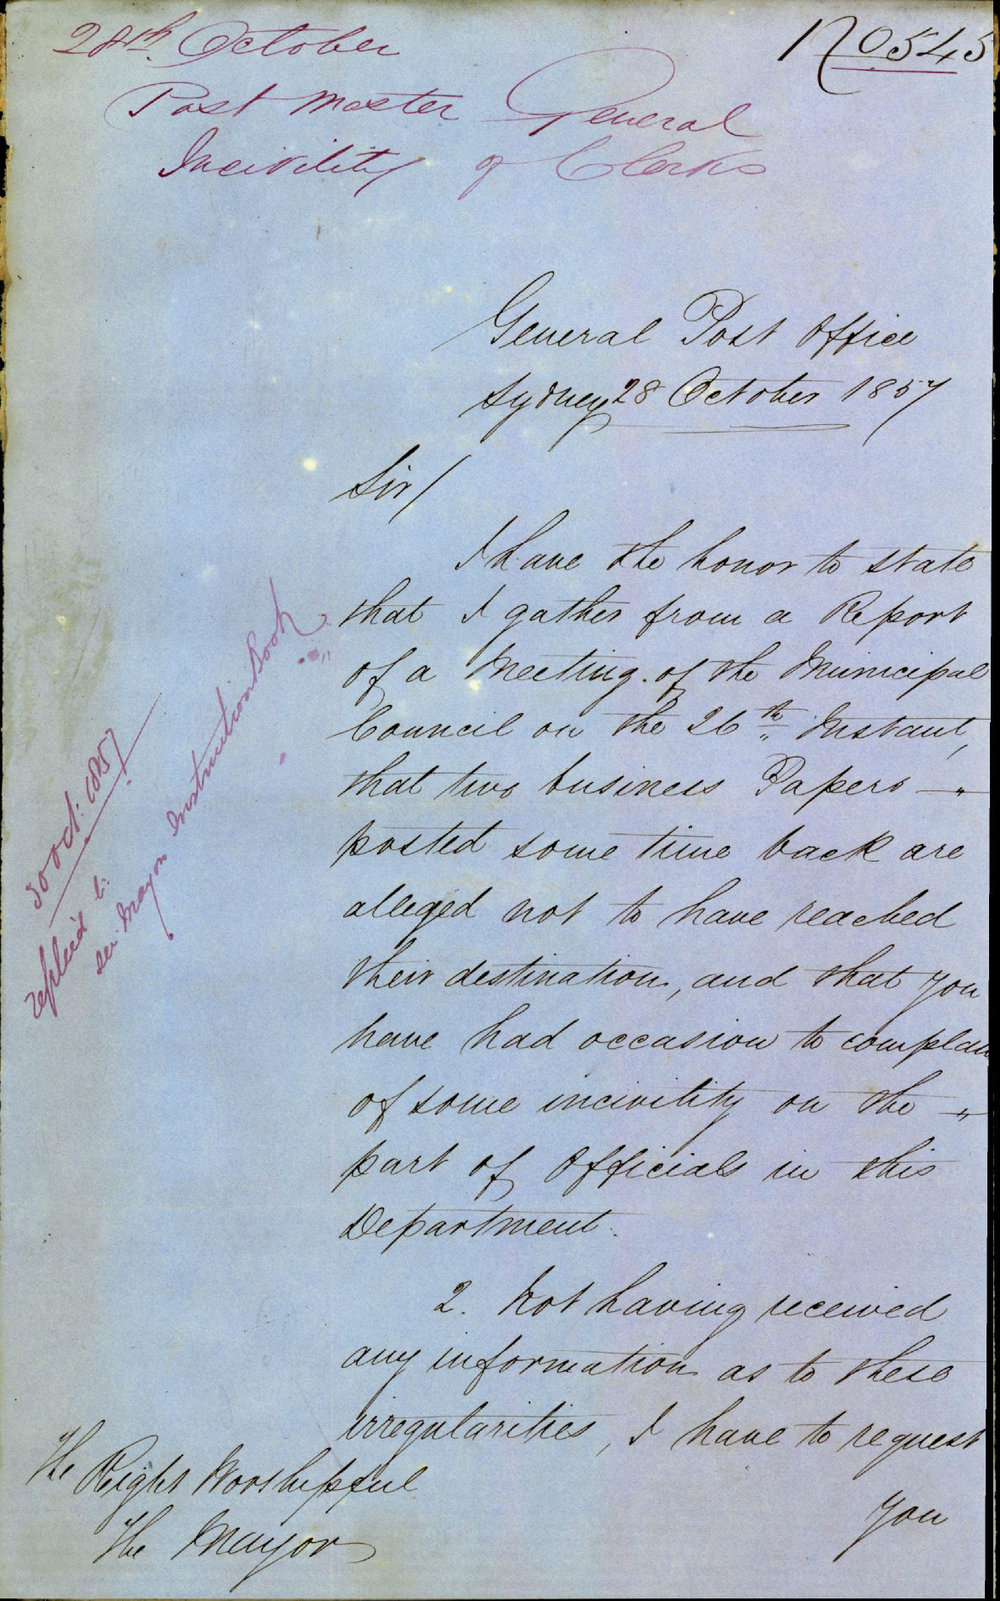 28th. October
No 545
Post Master General
Incivility of Clerks
General Post Office
Sydney 28 October 1857
Sir/
I have the honor to state
that I gather from a Report
of a Meeting of the Municipal
Council on the 26th Instant,
that two business Papers —"
posted some time back are
alleged not to have reached
their destination, and that you
have had occasion to complain
of some incivility on the —"
part of Officials in this
Department.
2. Not having received
any information as to these
irregularities, I have to request
you
The Right Worshipful
The Mayor
30 Oct. 1857
replied to
see Mayor Instruction Book